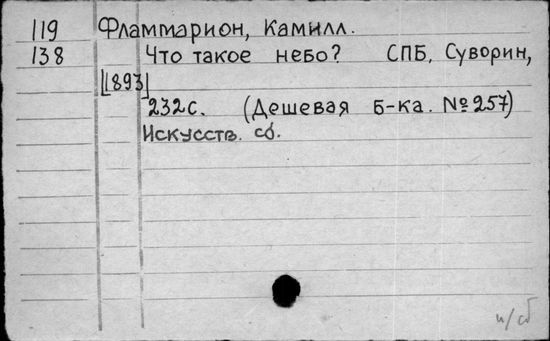 119 Фламмарион, Камилл.
138 Что такое небо? СПБ, Суворин,
[1893]
232с. (Дешевая б-ка. №257)
Искусств. сб.
и/сб